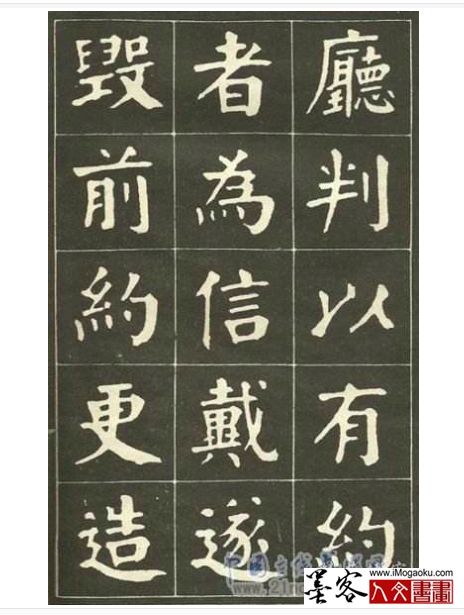 廳判以有約
者為信戴遂
毀前約更造
www.iMogaoku.com
墨客人文書畫